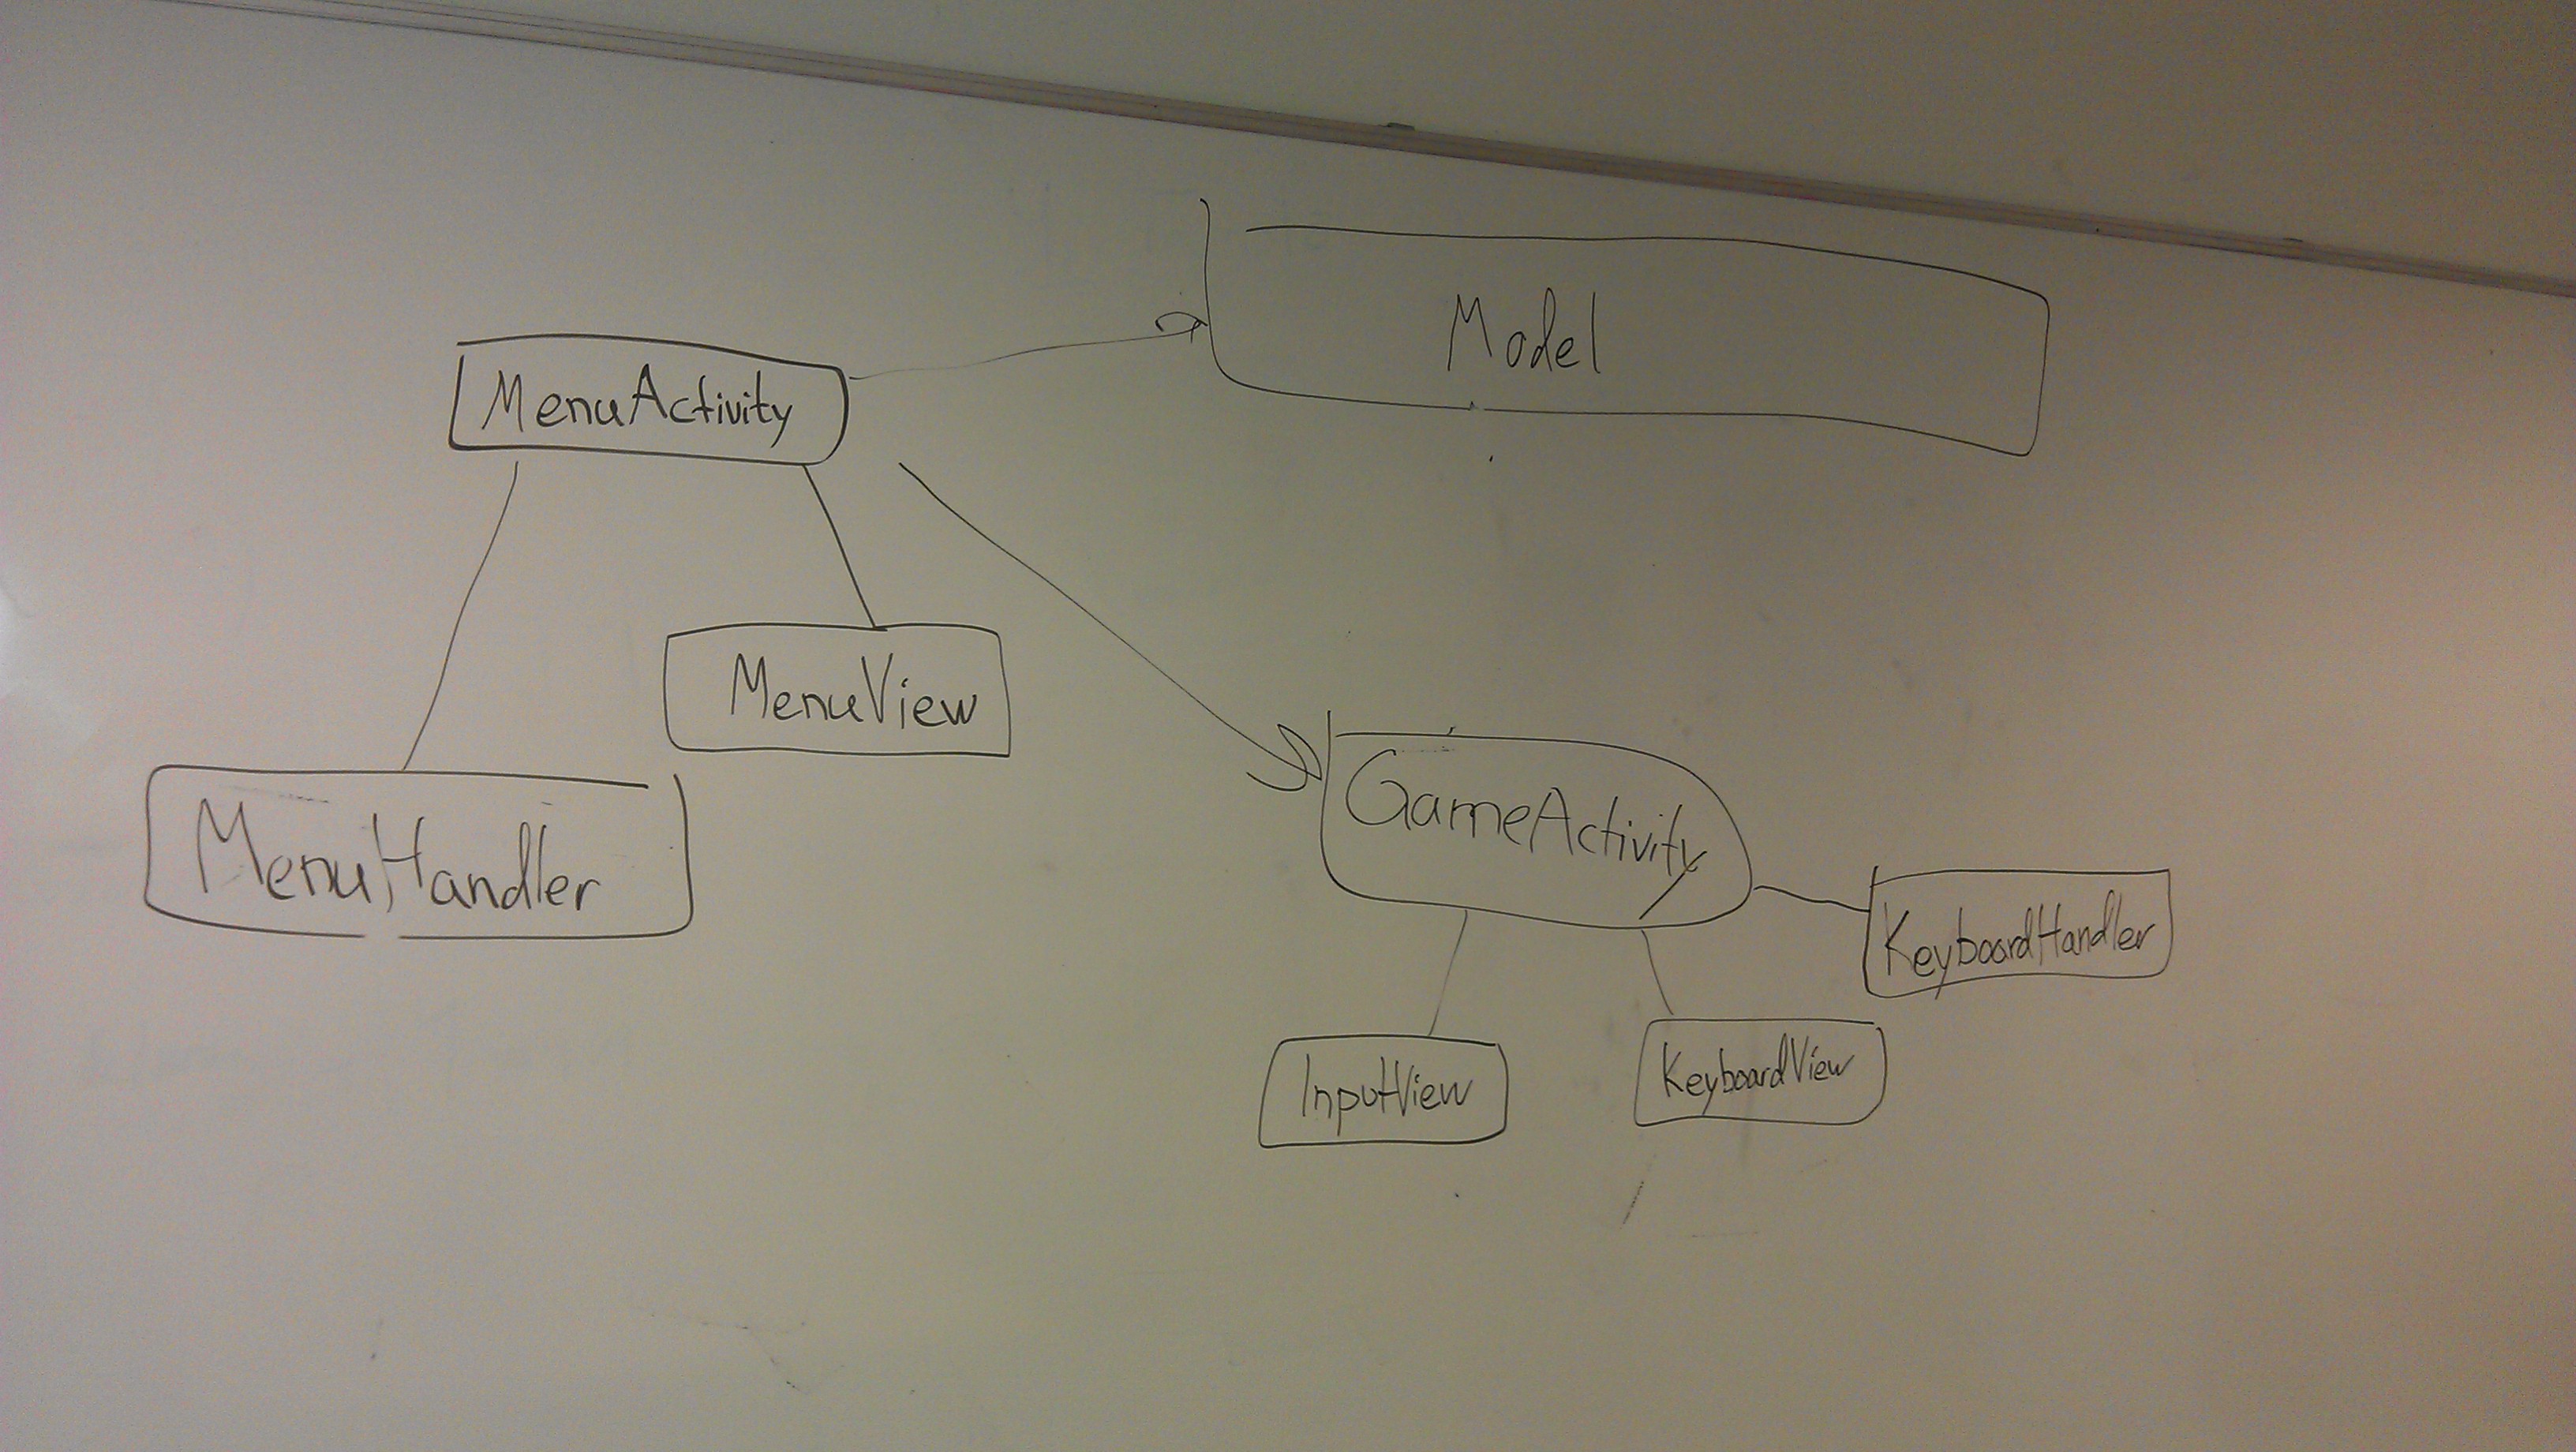 Model
MenuActivity
MenuView
MenuHandler
GameActivity
KeyboardHandler
InputView
KeyboardView